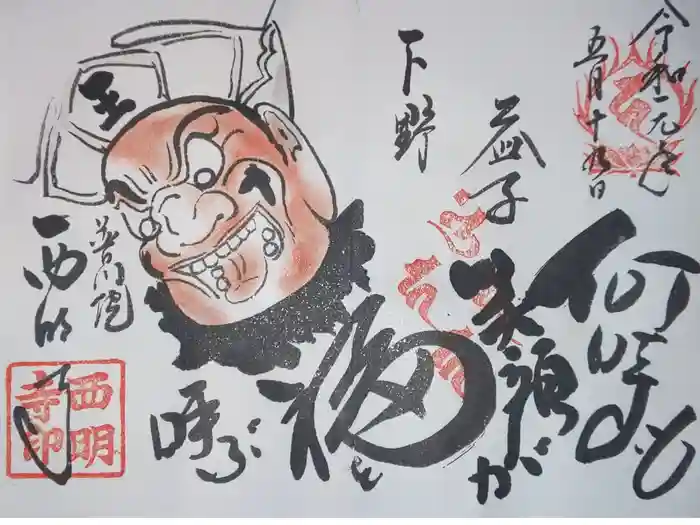 令和元年
五月十九日
何時も
笑顔が
福を
呼ぶ
下野
益子
王
普門院
西明寺
西明
寺印